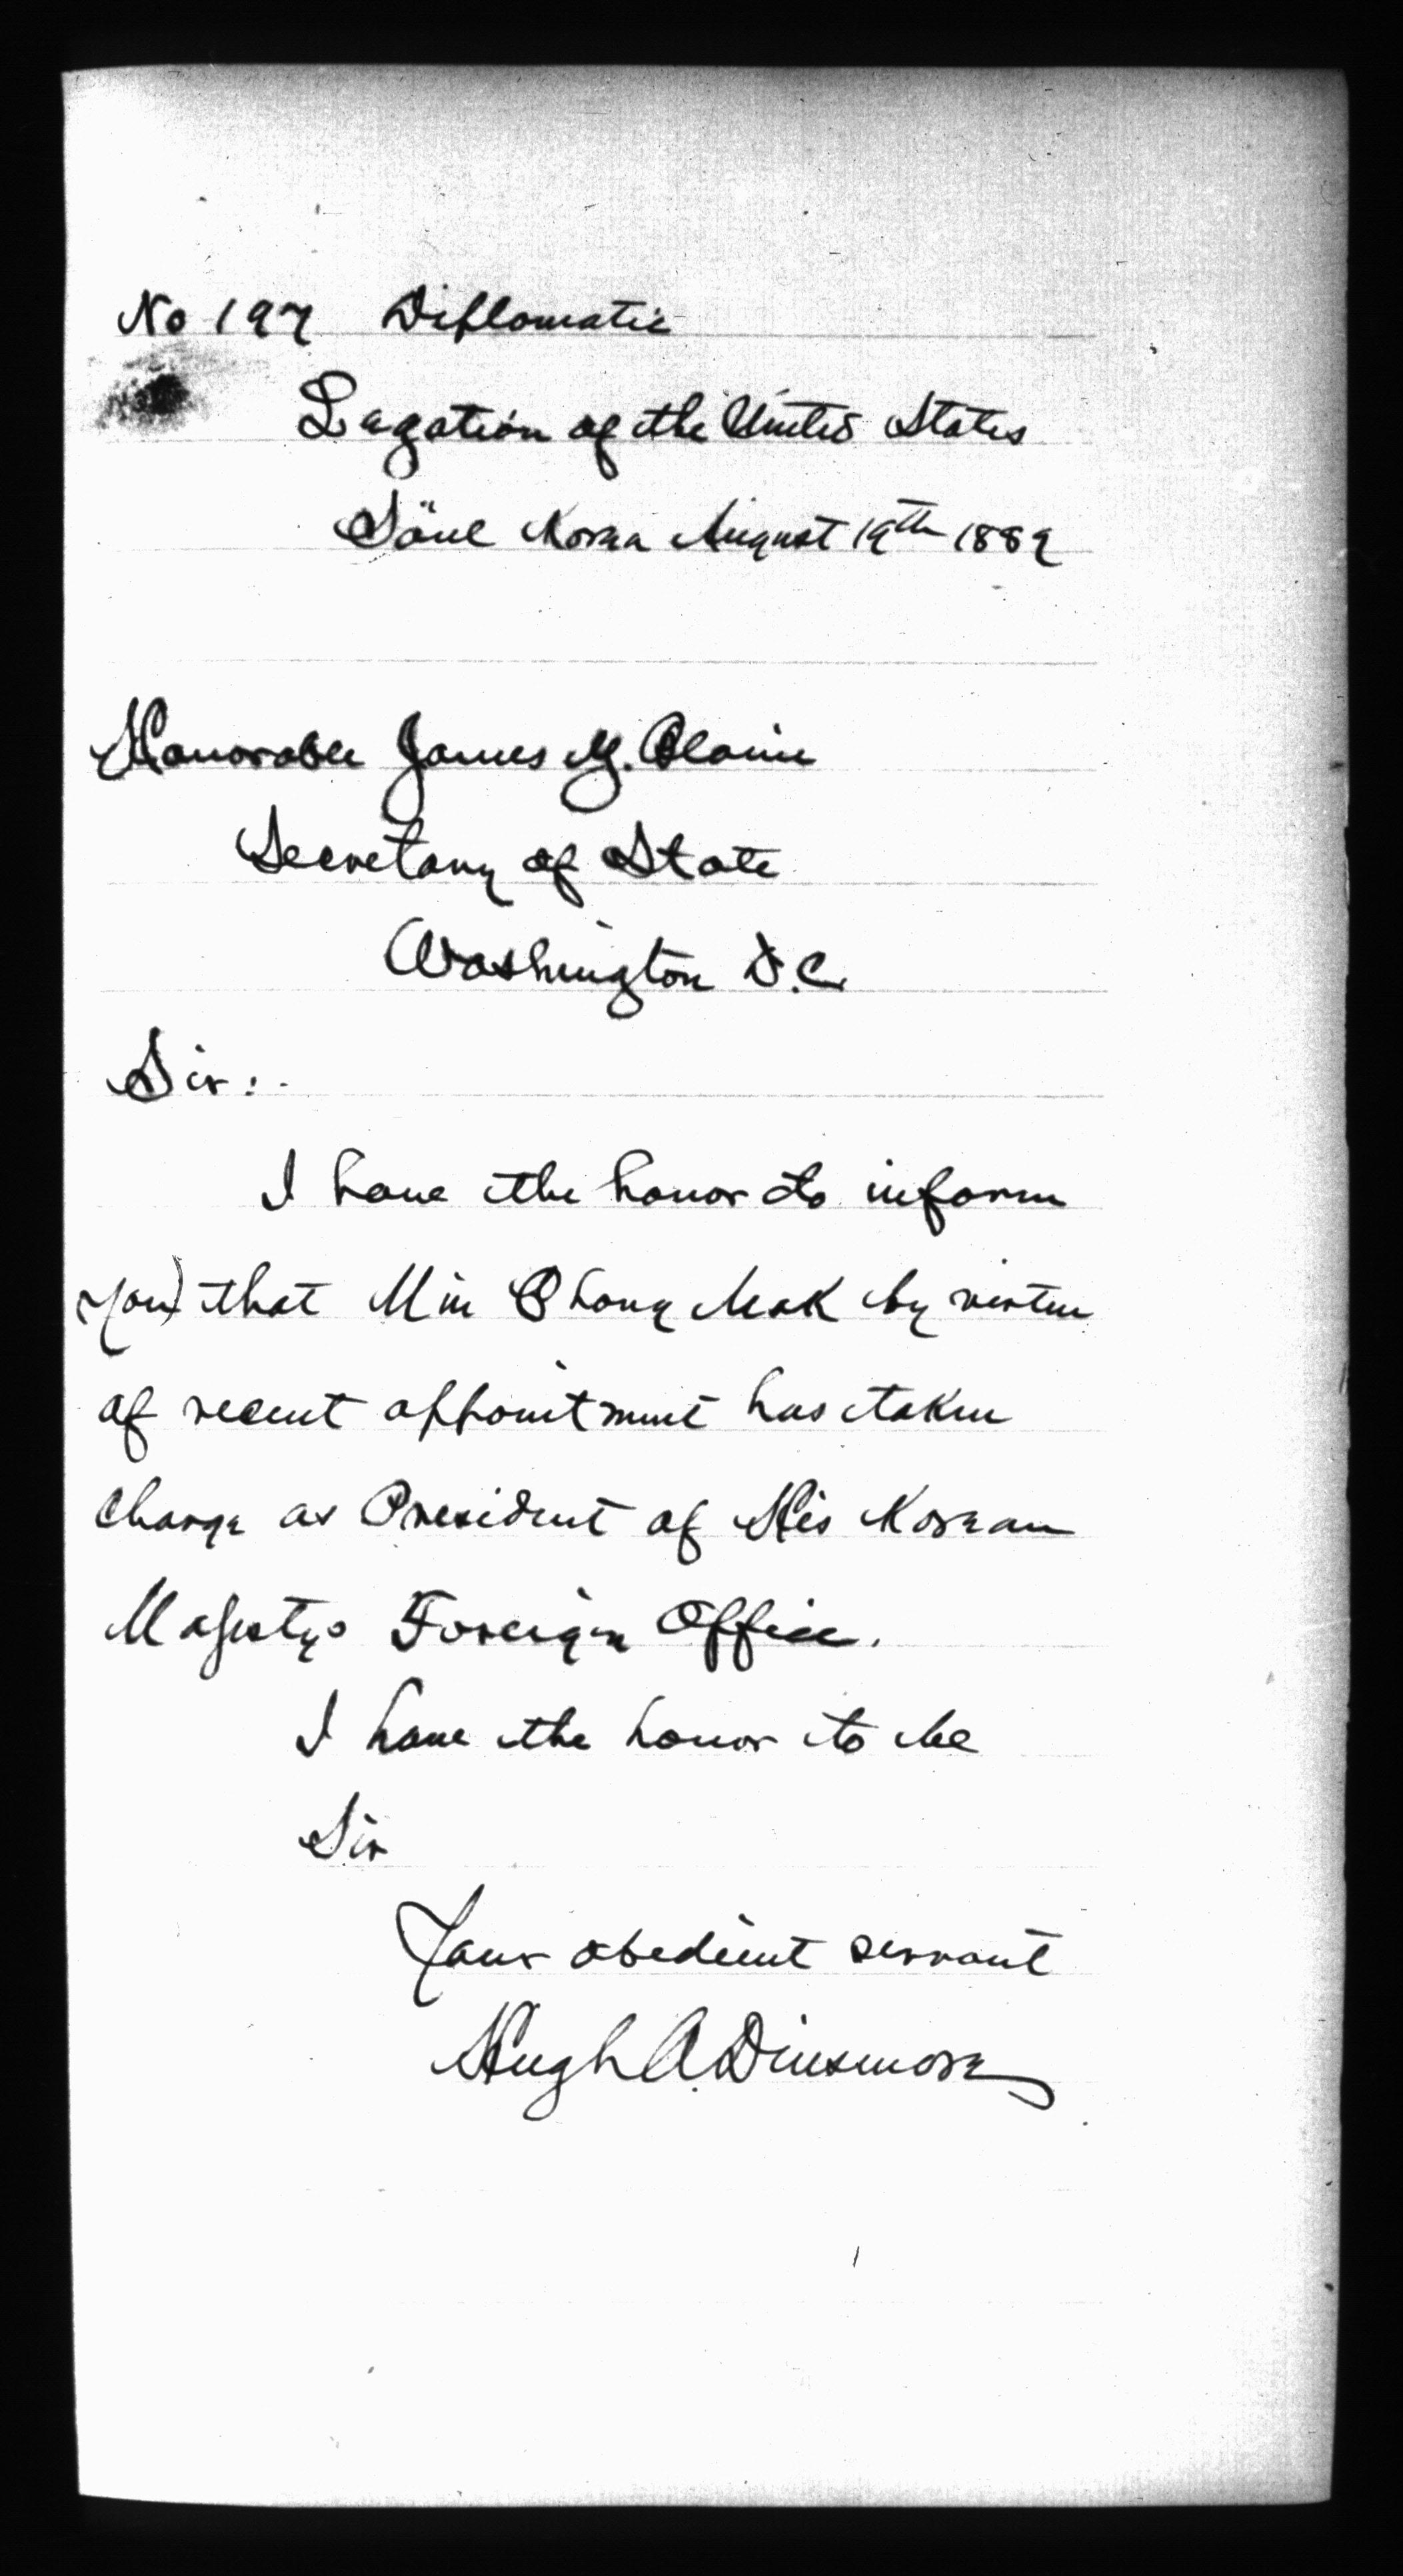 No 197 Diplomatic
Legation of the United States
Söul Korea August 19th 1889
Honorable James G. Blaine
Secretary of State
Washington D.C.
Sir:-
I have the honor to inform
you that Min Chong Mok by virtue
of recent appointment has taken
charge as President of His Korean
Majestys Foreign Office.
I have the honor to be
Sir
Your obedient servant
Hugh A. Dinsmore